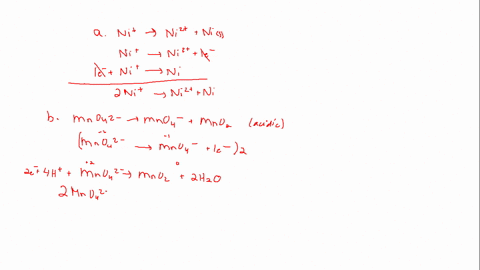 a. Ni⁺ → Ni²⁺ + Ni(s)
Ni⁺ → Ni²⁺ + 1e⁻
1e⁻ + Ni⁺ → Ni
2Ni⁺ → Ni²⁺ + Ni
b. MnO₄²⁻ → MnO₄⁻ + MnO₂ (acidic)
-2 -1
(MnO₄²⁻ → MnO₄⁻ + 1e⁻)2
+2 0
2e⁻ + 4H⁺ + MnO₄²⁻ → MnO₂ + 2H₂O
2MnO₄²⁻